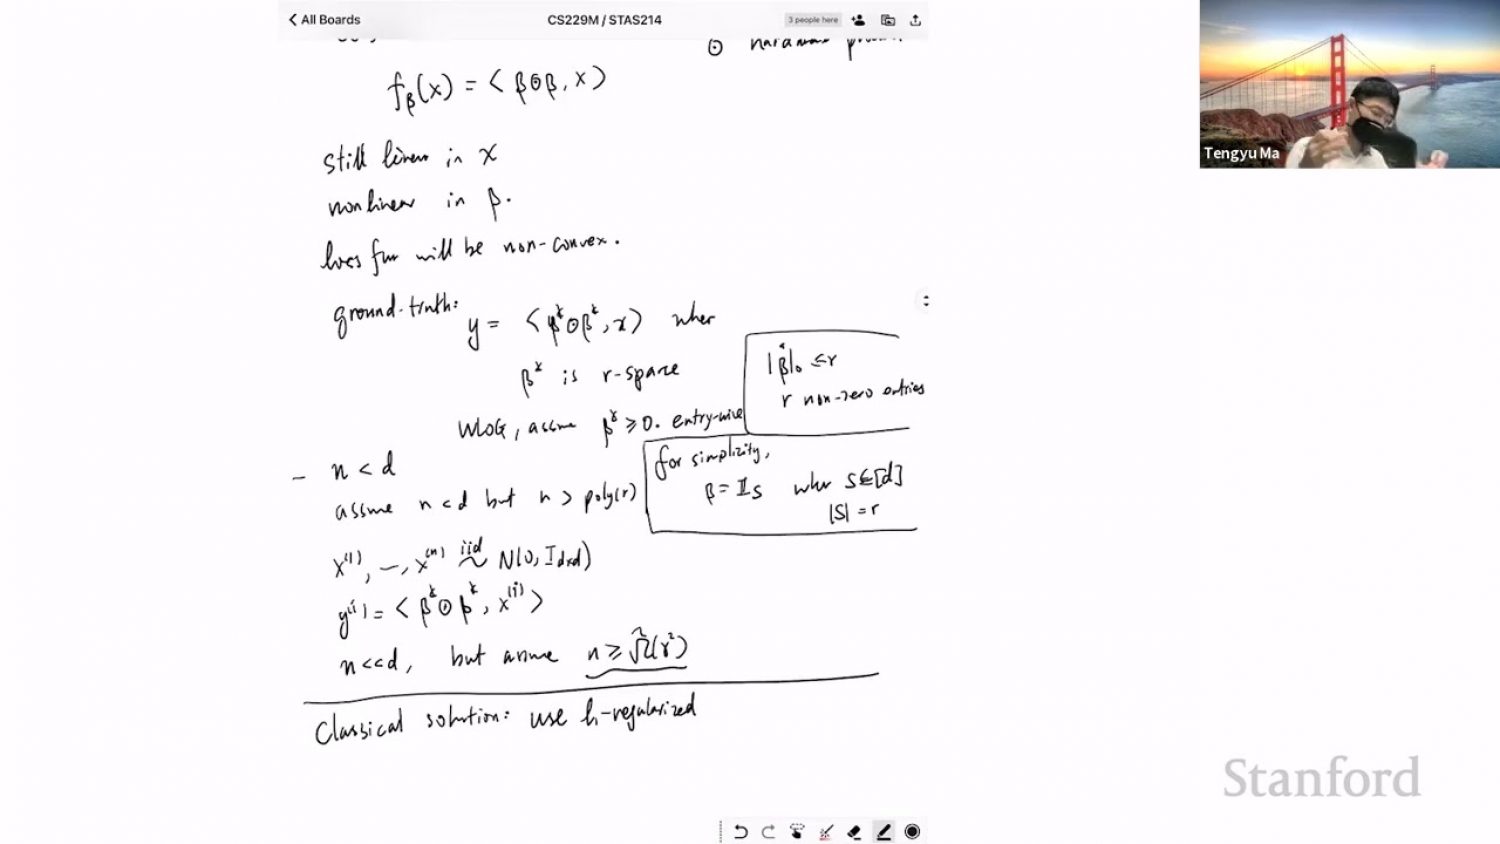 All Boards
CS229M / STAS214
3 people here
⊙ hardware
f_β(x) = ⟨ β⊙β, x ⟩
still linear in x
nonlinear in β.
loss fun will be non-convex.
ground-truth:
y = ⟨ β*⊙β*, x ⟩ wher
β* is r-sparse
|β*|₀ ≤ r
r non-zero entries
WLOG, assume β* ≥ 0. entry-wise
for simplicity,
β = 𝟙_S wher S⊆[d]
|S| = r
- n < d
assume n < d but n > poly(r)
x⁽¹⁾, –, x⁽ⁿ⁾ iid ~ N(0, I_{d×d})
y⁽ⁱ⁾ = ⟨ β*⊙β*, x⁽ⁱ⁾ ⟩
n<<d, but assume n ≥ Ω̃(r²)
Classical solution: use l₁-regularized
Tengyu Ma
Stanford